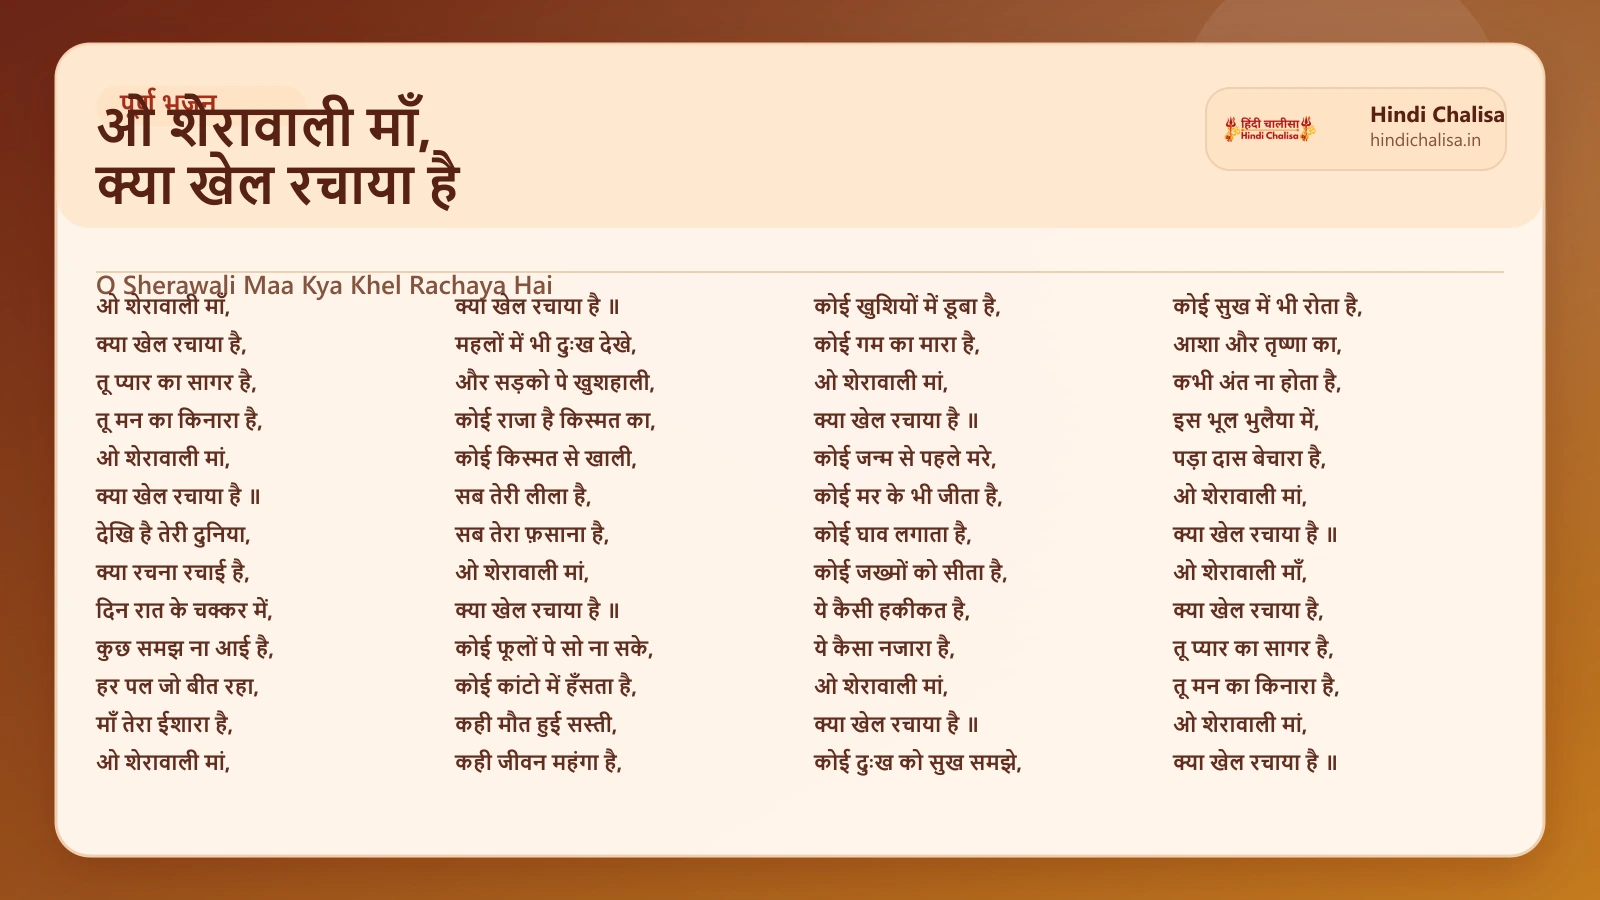 पूर्ण भजन
ओ शेरावाली माँ,
क्या खेल रचाया है
हिंदी चालीसा
Hindi Chalisa
Hindi Chalisa
hindichalisa.in
O Sherawali Maa Kya Khel Rachaya Hai
ओ शेरावाली माँ,
क्या खेल रचाया है,
तू प्यार का सागर है,
तू मन का किनारा है,
ओ शेरावाली मां,
क्या खेल रचाया है ॥
देखि है तेरी दुनिया,
क्या रचना रचाई है,
दिन रात के चक्कर में,
कुछ समझ ना आई है,
हर पल जो बीत रहा,
माँ तेरा ईशारा है,
ओ शेरावाली मां,
क्या खेल रचाया है ॥
महलों में भी दुःख देखे,
और सड़को पे खुशहाली,
कोई राजा है किस्मत का,
कोई किस्मत से खाली,
सब तेरी लीला है,
सब तेरा फ़साना है,
ओ शेरावाली मां,
क्या खेल रचाया है ॥
कोई फूलों पे सो ना सके,
कोई कांटो में हँसता है,
कही मौत हुई सस्ती,
कही जीवन महंगा है,
कोई खुशियों में डूबा है,
कोई गम का मारा है,
ओ शेरावाली मां,
क्या खेल रचाया है ॥
कोई जन्म से पहले मरे,
कोई मर के भी जीता है,
कोई घाव लगाता है,
कोई जख्मों को सीता है,
ये कैसी हकीकत है,
ये कैसा नजारा है,
ओ शेरावाली मां,
क्या खेल रचाया है ॥
कोई दुःख को सुख समझे,
कोई सुख में भी रोता है,
आशा और तृष्णा का,
कभी अंत ना होता है,
इस भूल भुलैया में,
पड़ा दास बेचारा है,
ओ शेरावाली मां,
क्या खेल रचाया है ॥
ओ शेरावाली माँ,
क्या खेल रचाया है,
तू प्यार का सागर है,
तू मन का किनारा है,
ओ शेरावाली मां,
क्या खेल रचाया है ॥